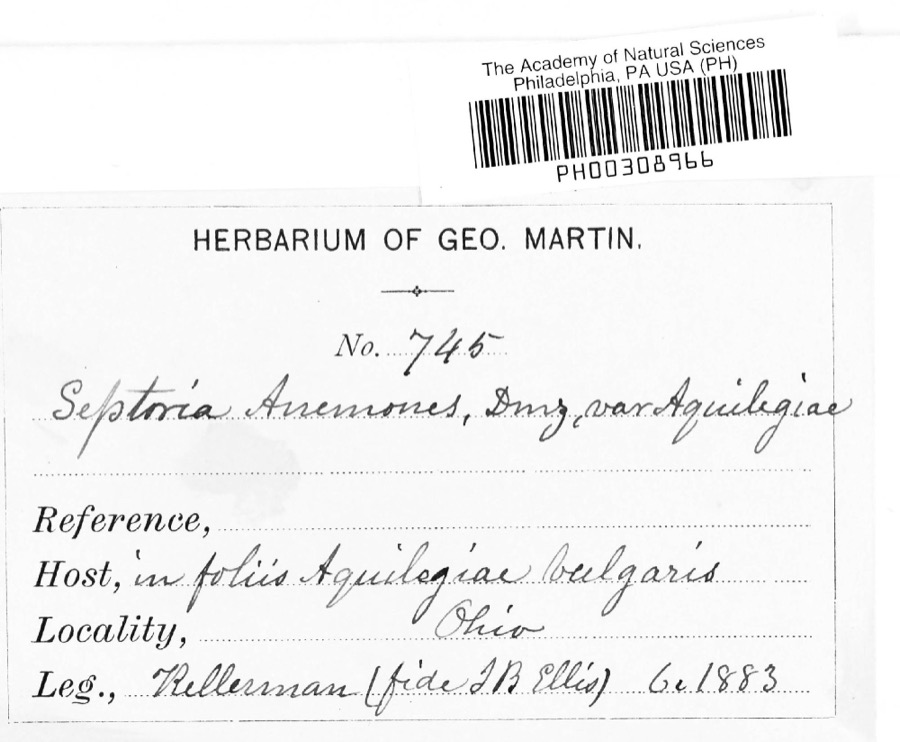 The Academy of Natural Sciences
Philadelphia, PA USA (PH)
PH00308966
HERBARIUM OF GEO. MARTIN.
No. 745
Septoria Anemones, Dmz, var Aquilegiae
Reference,
Host, in foliis Aquilegiae vulgaris
Locality, Ohio
Leg., Kellerman (fide J B Ellis) 6. 1883